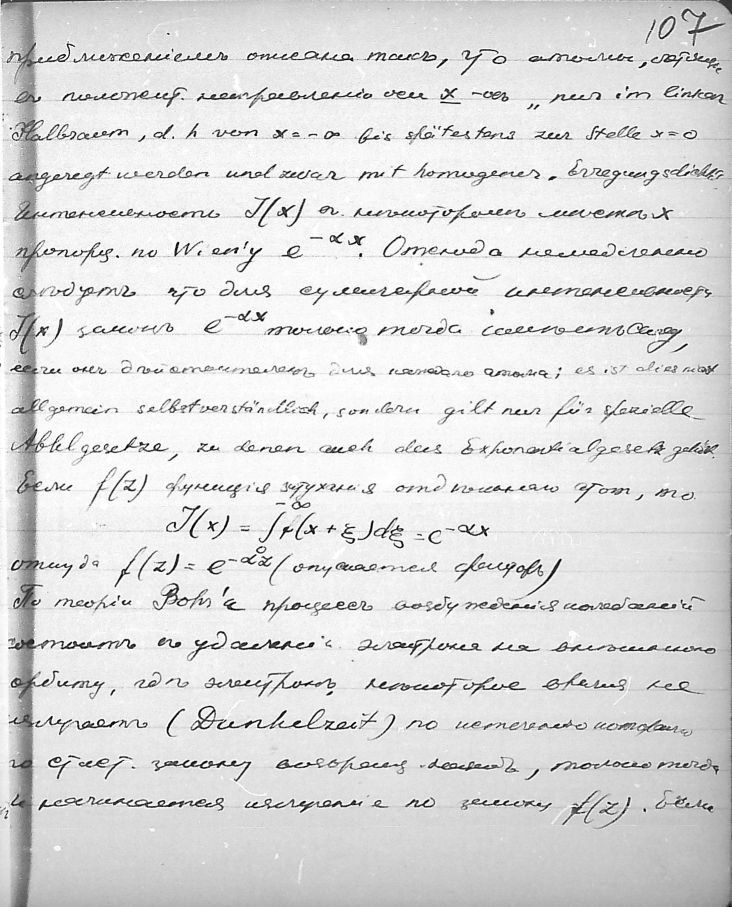 107
приближеніемъ описана такъ, что атомы, летящіе
въ положит. направленію оси x -овъ „nur im linken
Halbraum, d. h von x = -∞ bis spätestens zur Stelle x=0
angeregt werden und zwar mit homogener. Erregungsdichte
Интенсивность J(x) въ некоторомъ мѣстѣ x
пропорц. по Wien'у e^{-αx}. Отсюда немедленно
что для суммарной интенсивность
J(x) законъ e^{-αx} только тогда
если онъ дѣйствителенъ для каждаго атома; es ist dies nicht
allgemein selbstverständlich, sondern gilt nur für spezielle
Abklgesetze, zu denen auch das Exponentialgesetz gehört.
Если f(z) функція затуханія отдѣльнаго атом, то
J(x) = ∫_0^{-∞} f(x + ξ)dξ = e^{-αx}
откуда f(z) = e^{-αz} (опускается факторъ)
По теоріи Bohr'а процессъ возбужденія колебаній
состоитъ въ удаленіи электрона на внѣшнюю
орбиту, гдѣ электронъ нѣкоторое время не
излучаетъ (Dunkelzeit) по истеченію котораго
по стат. закону назадъ, только тогда
и начинается излученіе по закону f(z). Если